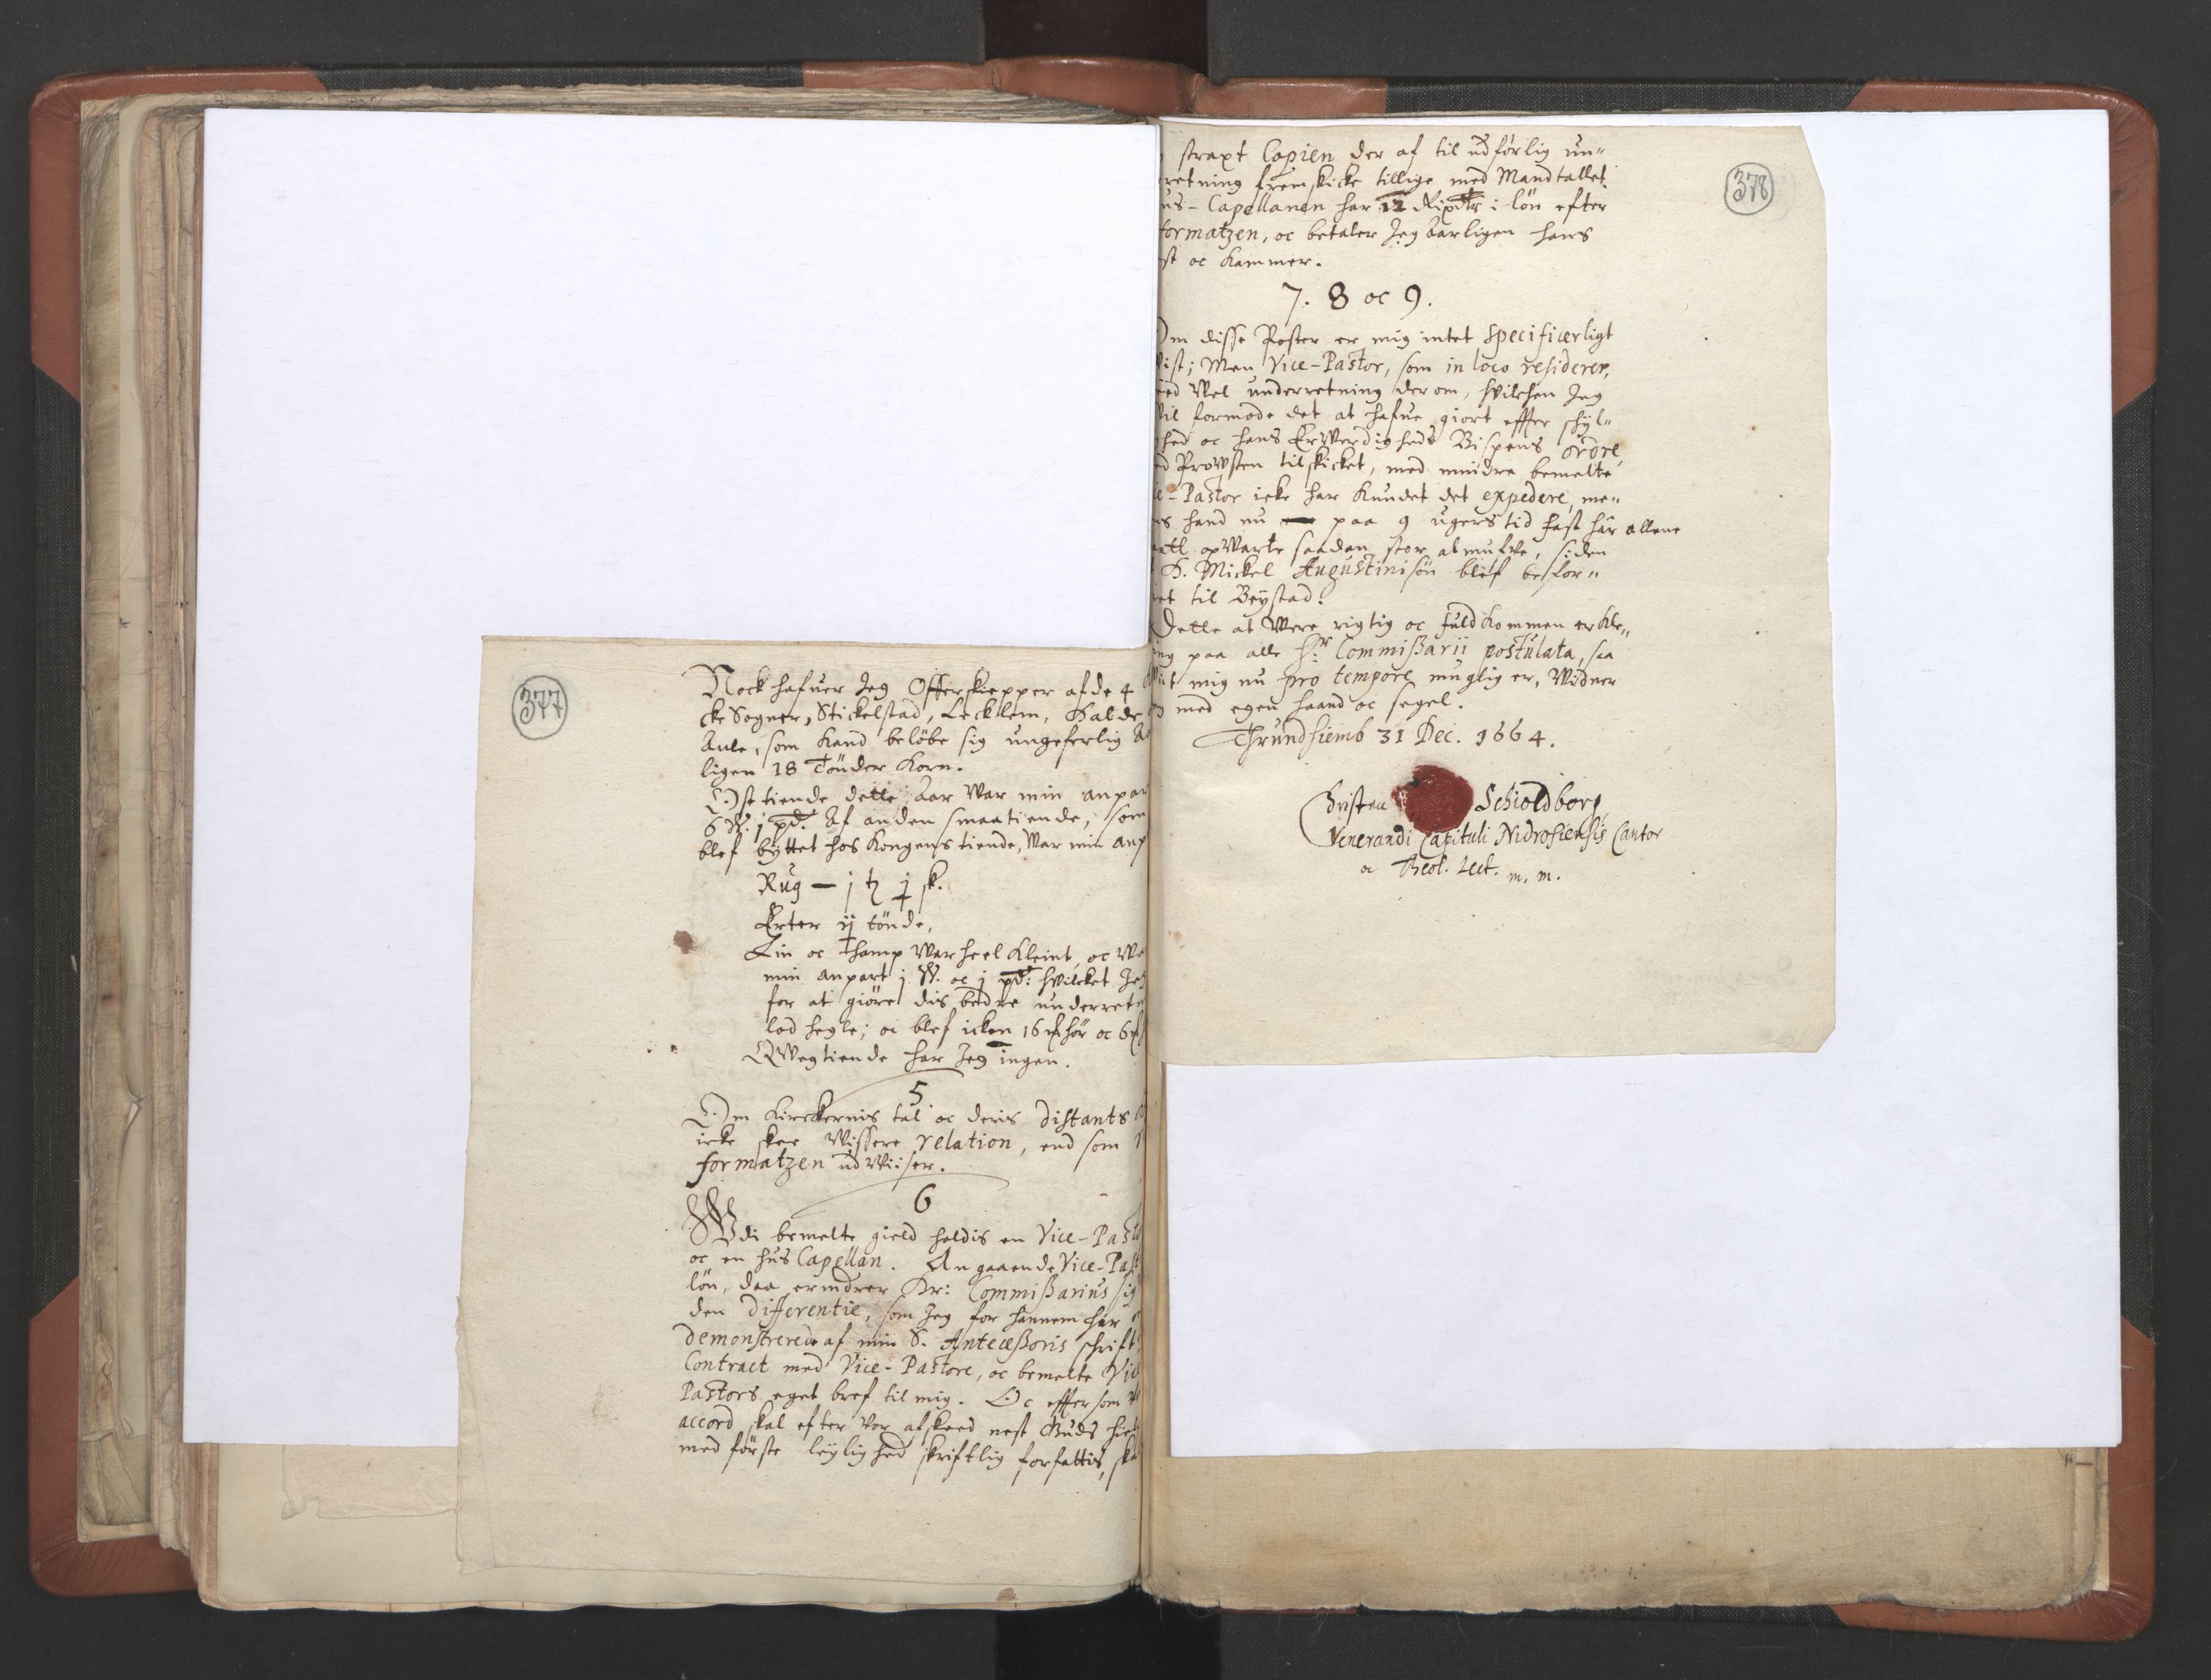 377
Nock hafuer Jeg Offerskiepper af de 4
cke Sogner, Stickelstad, Lecklem, Halde
Aule, som kand beløbe sig ungeferlig
ligen 18 Tönder Korn.
Ost tiende dette Aar War min anpar
6 W. j pd. Af anden smaatiende, som
blef byttet hos Kongens tiende, War min anp
Rug — j
Erter ij tönde,
Lin oc Hamp War heel kleint, oc
min anpart j W. oc j pd: hvilcket Jeg
for at giöre dis bedre underret
lod hegle; oc blef icken 16 hör oc 6
QWegtiende har Jeg ingen.
5
Om Kirckernis tal oc deris distants
icke skee Wissere relation, end som
formatzen udWiiser.
6
Udi bemelte gield holdis en Vice-Past
oc en hus Capellan. Angaaende Vice-Past
lön, daa erindrer Hr: Commissarius sig
den differentie, som Jeg for hannem har
demonstrerede af min S. Antecessoris schrift
Contract med Vice-Pastore, oc bemelte Vice
Pastors eget bref til mig. Oc effter som
accord skal efter vor afskeed nest Guds hielp
med förste leylighed skriftlig forfattis, ska
378
straxt Copien der af til udförlig un"
retning fremskicke tillige med Mandtallet.
us-Capellanen har 12 Rixdlr i lön efter
formatzen, oc betaler Jeg Aarligen hans
st oc Kammer.
7. 8 oc 9.
Om disse Poster er mig intet specificerligt
vist; Men Vice-Pastor, som in loco residerer,
ved Wel underretning derom, hvilchen Jeg
Vil formode det at hafue giort effter skyl"
hed oc hans ErWerdigheds Bispens ordre
ed ProWsten tilskicket, med mindre bemelte
e-Pastor icke har kundet det expedere, me"
ns hand nu paa 9 ugers tid hast har allene
att opWarte saadan stor almufve, siden
H. Mickel Augustinisön blef befor"
ret til Beystad.
Dette at Were rigtig oc fuldkommen erkle"
ing paa alle Hr: Commissarii postulata, saa
Vit mig nu pro tempore muglig er, Widner
med egen haand oc segel.
Thrundhiemb 31 Dec. 1664.
Christen Schioldborg
Venerandi Capituli Nidrosiensis Cantor
oc Theol. Lect. m. m.